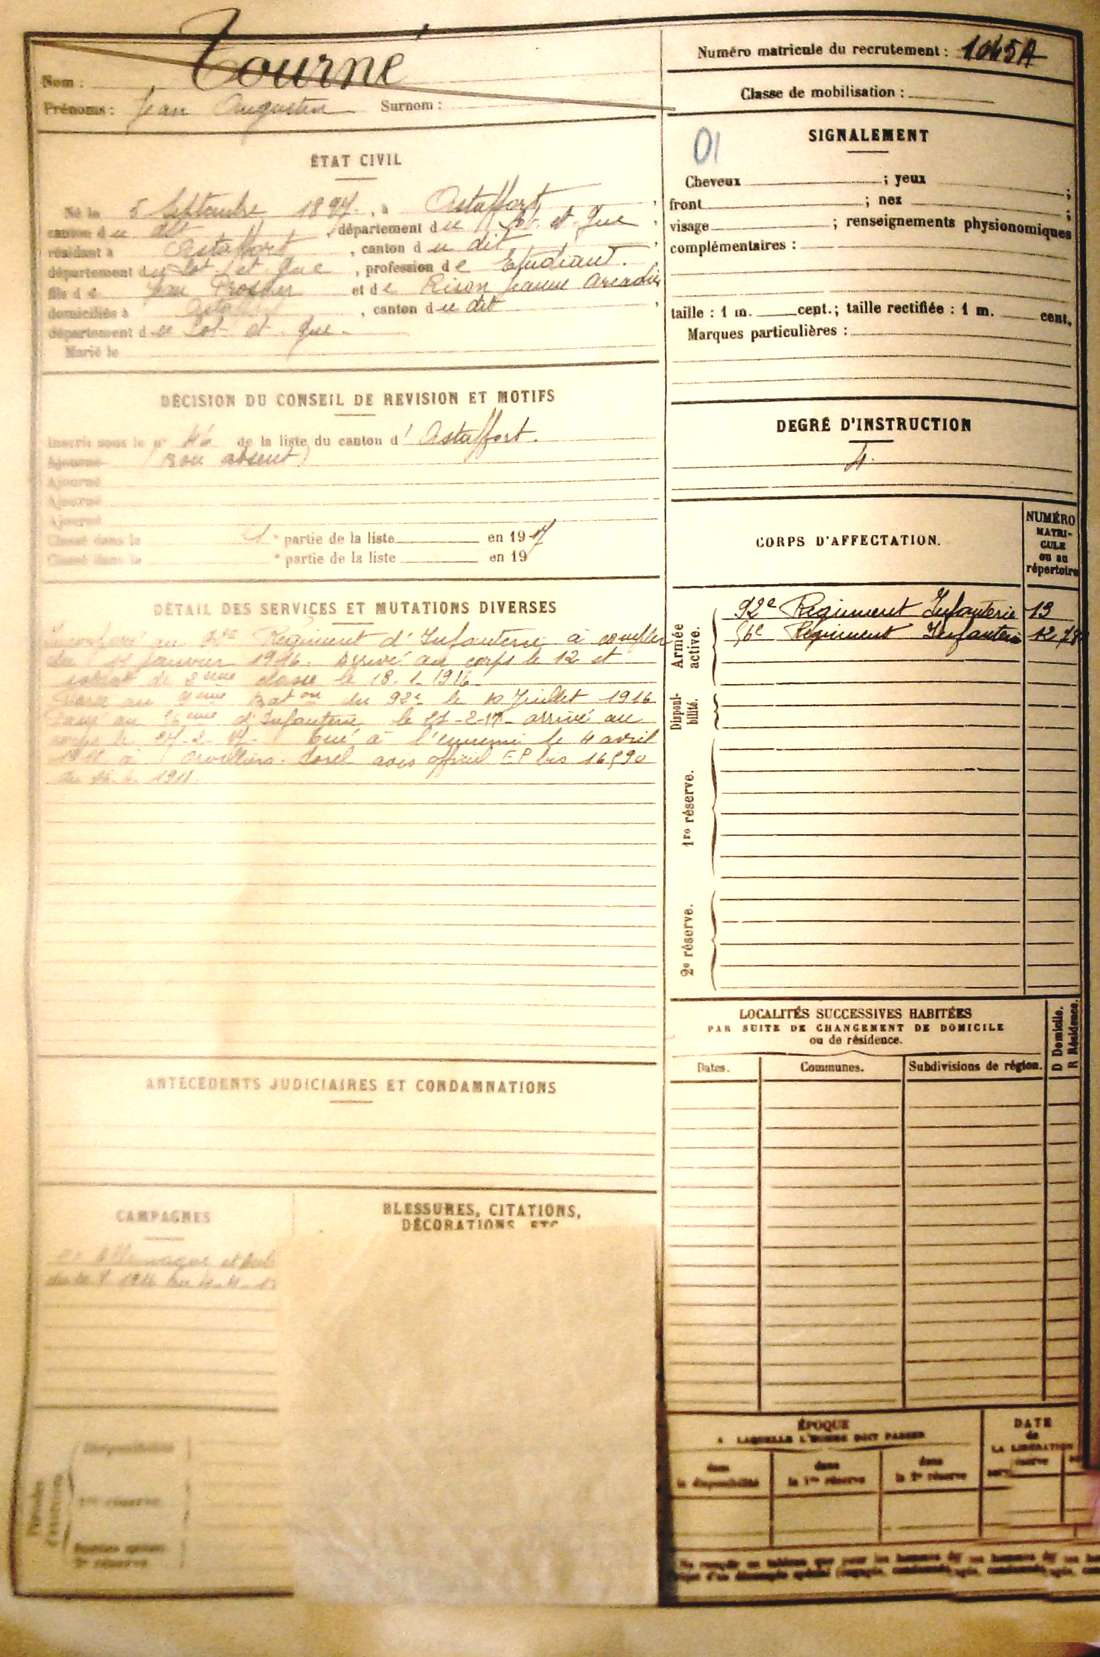 Nom : Tourné
Prénoms : Jean Augustin Surnom :
Numéro matricule du recrutement : 1045A
Classe de mobilisation :
ÉTAT CIVIL
Né le 5 Septembre 1897, à Astaffort,
canton du dit, département du Lot et Gne,
résidant à Astaffort, canton du dit
département du Lot et Gne, profession de Etudiant.
fils de Jean Prosper et de Rison Jeanne
domiciliés à, canton du dit,
département du Lot et Gne.
Marié le
DÉCISION DU CONSEIL DE REVISION ET MOTIFS
Inscrit sous le n° de la liste du canton d'Astaffort.
Ajourné (Bon absent)
Ajourné
Ajourné
Ajourné
Classé dans le 1 e partie de la liste en 1917
Classé dans le e partie de la liste en 19
DÉTAIL DES SERVICES ET MUTATIONS DIVERSES
Incorporé au 92e Régiment d'Infanterie à compter
du janvier 1916. Arrivé au corps le 12 et
soldat de 2ème classe le 18.1.1916
Passé au 9ème Baton du 92e le 10 Juillet 1916
Passé au 56ème d'Infanterie le 21-2-17 arrivé au
corps le 27-2-17. Tué à l'ennemi le 4 avril
1918 à Arvillers. avis officiel
du 1918.
ANTÉCÉDENTS JUDICIAIRES ET CONDAMNATIONS
CAMPAGNES
Allemagne
1916 au
BLESSURES, CITATIONS,
DÉCORATIONS, ETC
Disponibilité
1re réserve
2e réserve
01
SIGNALEMENT
Cheveux ; yeux ;
front ; nez ;
visage ; renseignements physionomiques
complémentaires :
taille : 1 m. cent.; taille rectifiée : 1 m. cent.
Marques particulières :
DEGRÉ D'INSTRUCTION
4
CORPS D'AFFECTATION.
NUMÉRO
MATRI-
CULE
ou au
répertoire
Armée active.
92e Régiment Infanterie 13
56e Régiment Infanterie
Disponibilité.
1re réserve.
2e réserve.
LOCALITÉS SUCCESSIVES HABITÉES
PAR SUITE DE CHANGEMENT DE DOMICILE
ou de résidence.
D Domicile.
R Résidence.
Dates. Communes. Subdivisions de région.
ÉPOQUE
A LAQUELLE L'HOMME DOIT PASSER
DATE
de
LA LIBÉRATION
dans la disponibilité
dans la 1re réserve
dans la 2e réserve